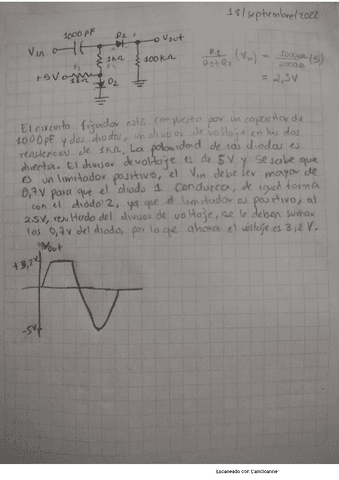 18/septiembre/2022
1000 pF
D1
Vout
Vin
1KΩ
100KΩ
+5V
1KΩ
D2
(Vin) = (5)
= 2,5V
El circuito fijador esta compuesto por un capacitor de
1000pF y dos diodos, un divisor de voltaje en las dos
resistencias de 1KΩ. La polaridad de los diodos es
directa. El divisor de voltaje es de 5V y se sabe que
es un limitador positivo, el Vin debe ser mayor de
0,7V para que el diodo 1 conduzca, de igual forma
con el diodo 2, ya que el limitador es positivo, al
2.5V, resultado del divisor de voltaje, se le deben sumar
los 0,7V del diodo, por lo que ahora el voltaje es 3,2 V.
Vout
+3,2V
-5V
Escaneado con CamScanner